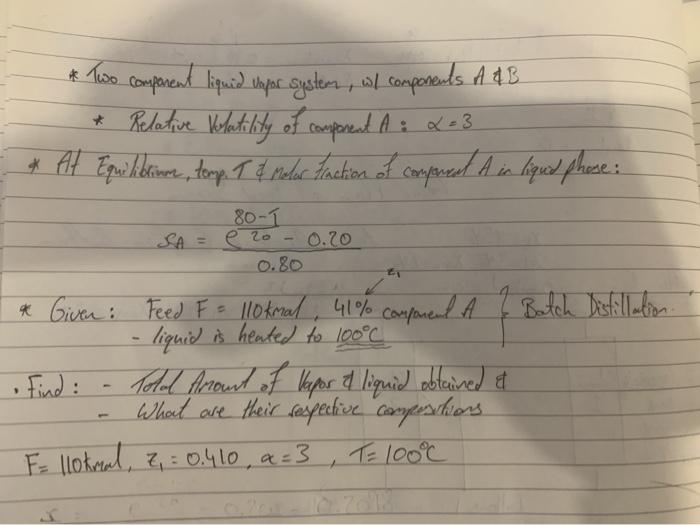 * Two component liquid vapor system, w/ components A & B
* Relative Volatility of component A : α = 3
* At Equilibrium, temp. T & Molar fraction of component A in liquid phase :
80-T
xA = e 20 - 0.20
0.80
z₁
* Given : Feed F = 110kmol, 41% component A } Batch Distillation.
- liquid is heated to 100°C
• Find : - Total Amount of Vapor & liquid obtained &
- What are their respective compositions
F = 110kmol, z₁ = 0.410, α = 3 , T = 100°C